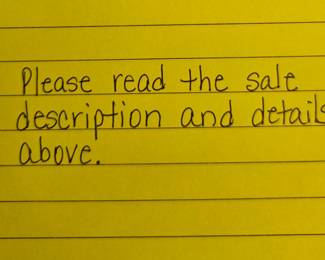 Please read the sale
description and details
above.